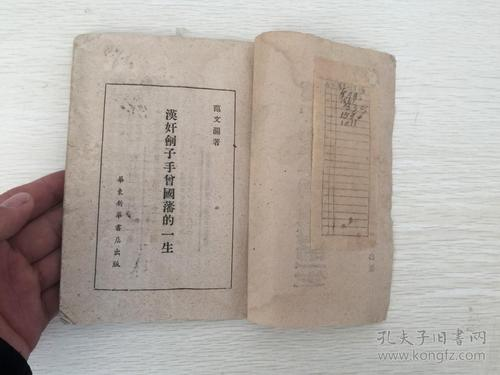 范文瀾著
漢奸劊子手曾國藩的一生
華東新華書店出版
孔夫子旧书网
www.kongfz.com